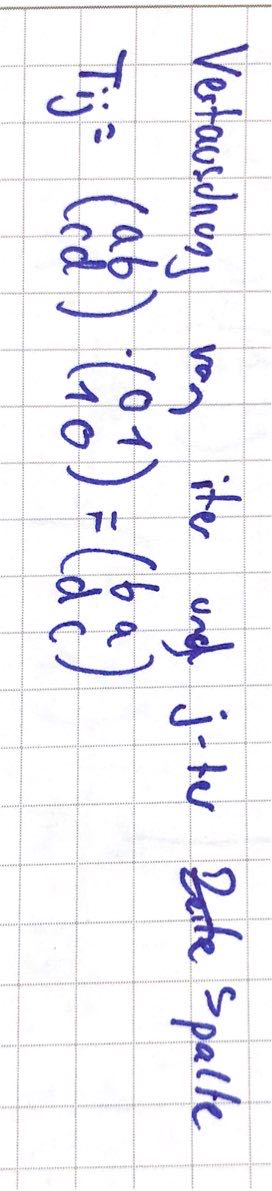 Vertauschung von iter und j-ter Zeile Spalte
Tij = (a b) · (0 1) = (b a)
(c d) (1 0) (d c)